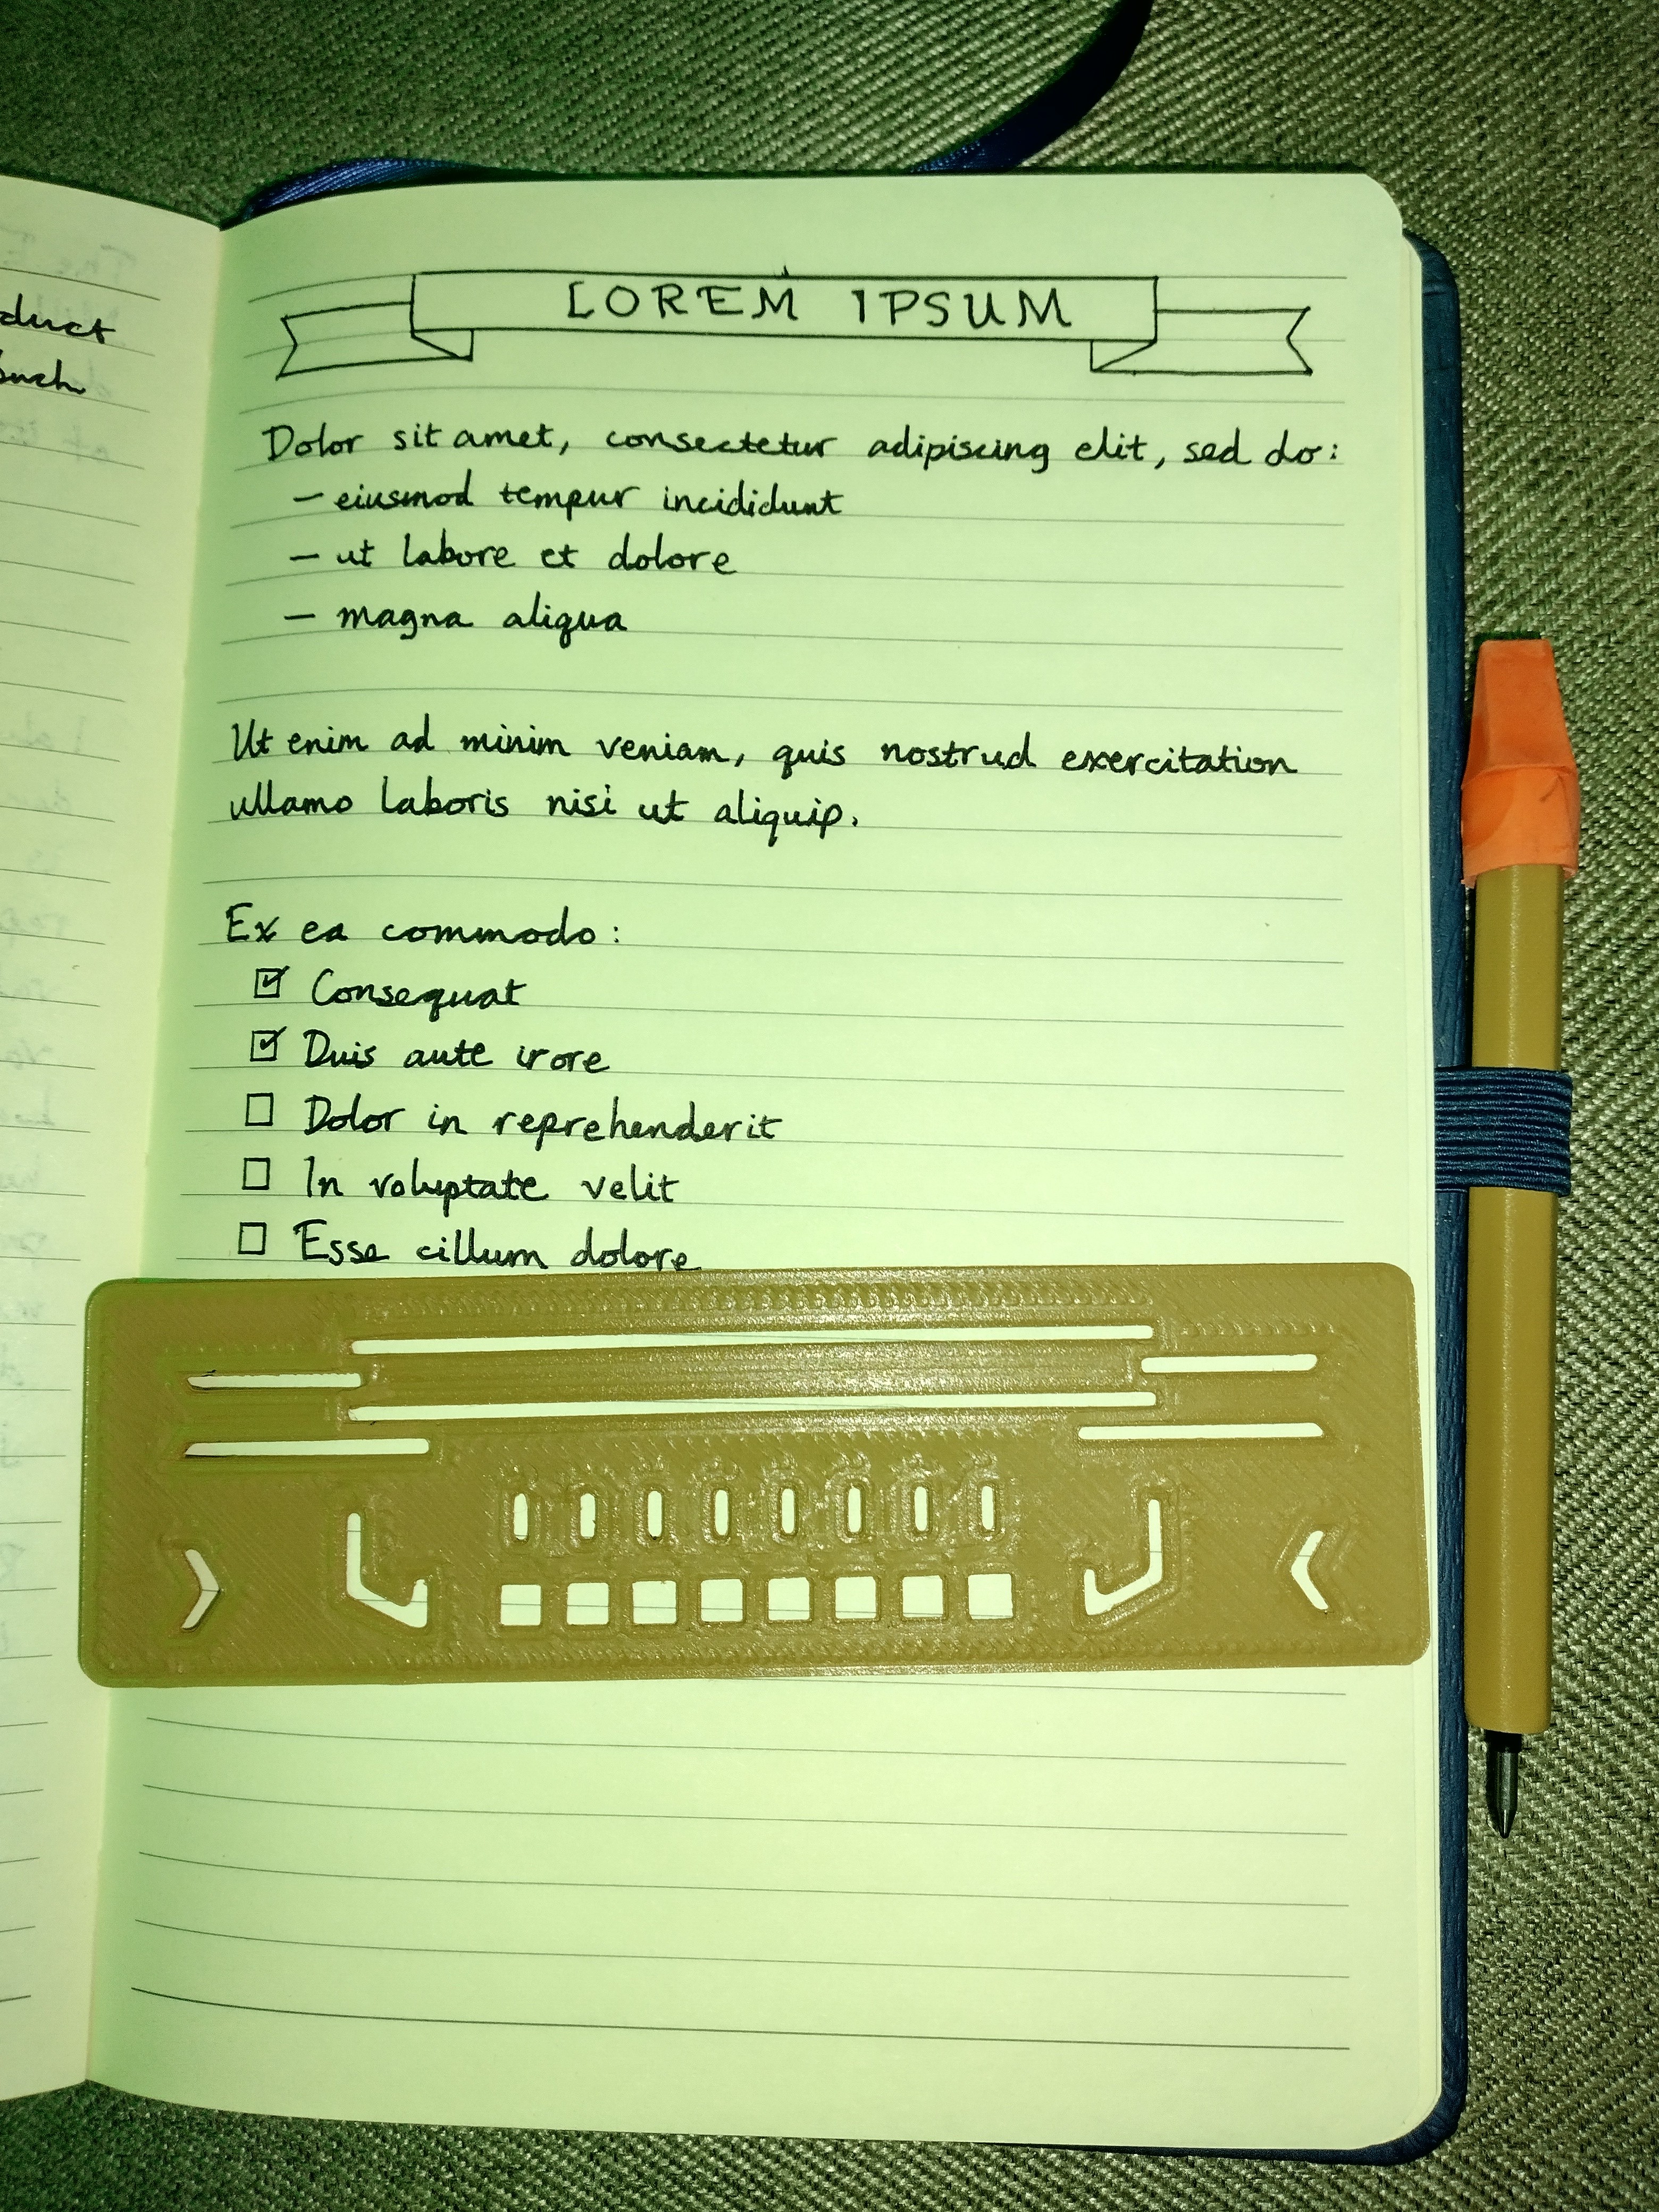 duct
such
LOREM IPSUM
Dolor sit amet, consectetur adipiscing elit, sed do:
– eiusmod tempur incididunt
– ut labore et dolore
– magna aliqua
Ut enim ad minim veniam, quis nostrud exercitation
ullamo laboris nisi ut aliquip.
Ex ea commodo:
☑ Consequat
☑ Duis aute irore
☐ Dolor in reprehenderit
☐ In voluptate velit
☐ Esse cillum dolore